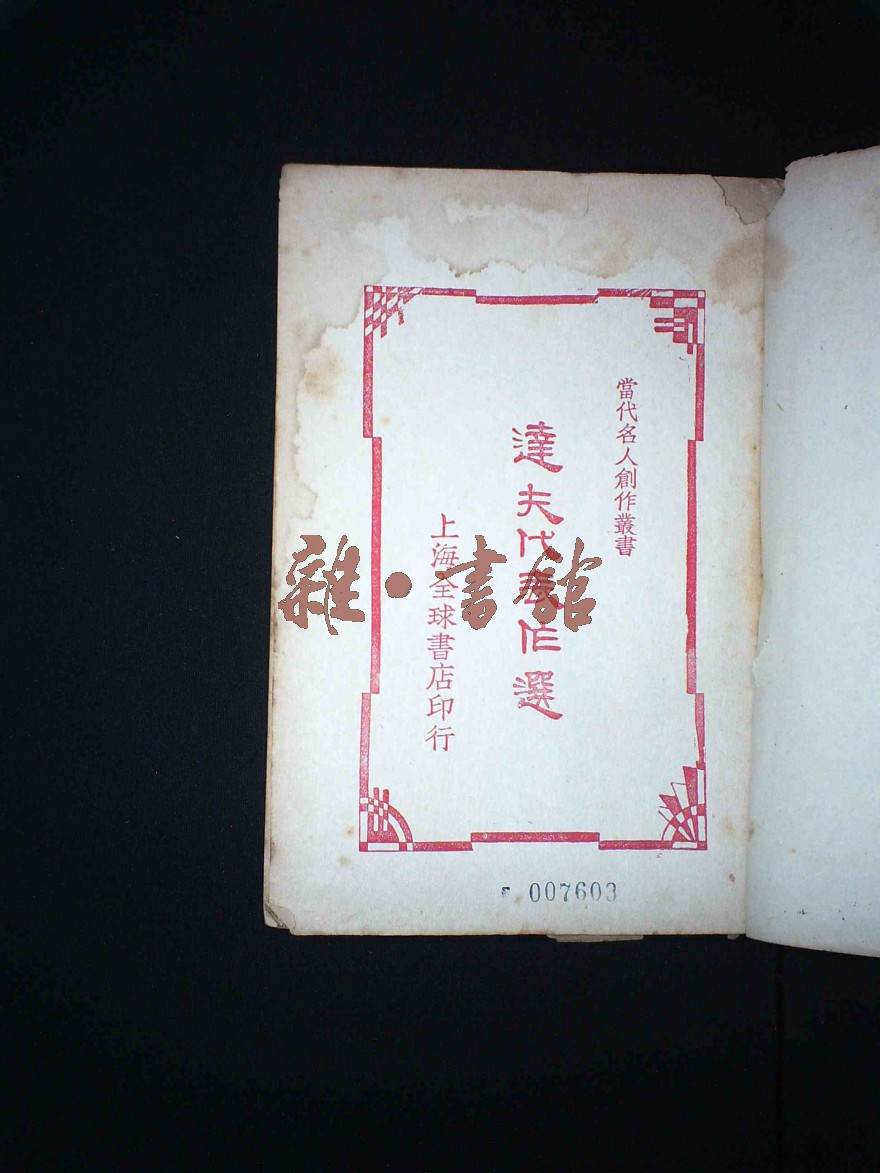 當代名人創作叢書
達夫代表作選
上海全球書店印行
雜·書館
007603